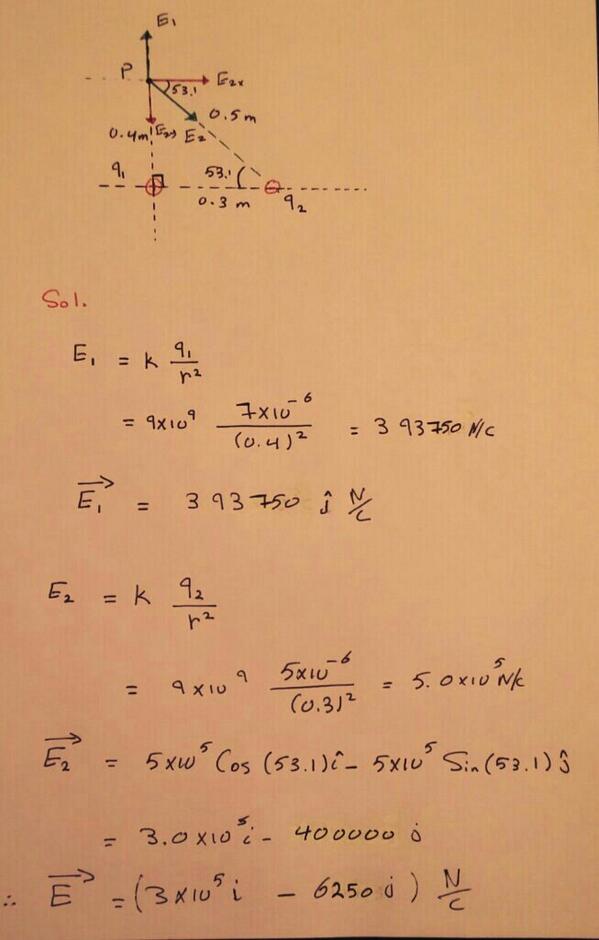 E₁
P
E₂ₓ
53.1
0.5 m
0.4m
E₂y
E₂
q₁
53.1
0.3 m
q₂
Sol.
E₁ = k q₁/r²
= 9x10⁹ 7x10⁻⁶/(0.4)² = 393750 N/C
E₁⃗ = 393750 ĵ N/C
E₂ = k q₂/r²
= 9x10⁹ 5x10⁻⁶/(0.3)² = 5.0x10⁵ N/C
E₂⃗ = 5x10⁵ Cos (53.1) î - 5x10⁵ Sin (53.1) ĵ
= 3.0x10⁵ i - 400000 j
∴ E⃗ = (3x10⁵ i - 6250 j) N/C